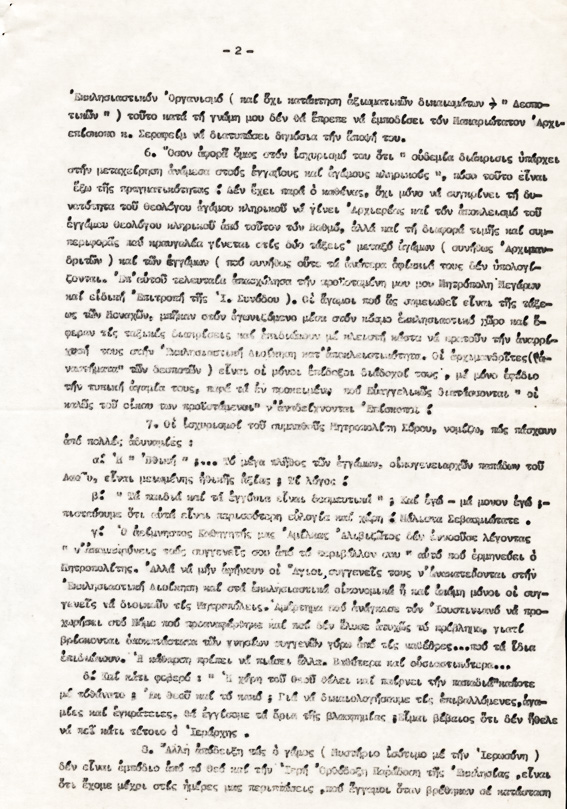 - 2 -
Ἐκκλησιαστικόν Ὀργανισμό ( καί ὄχι κατάκτηση ἀξιωματικῶν δικαιωμάτων → " Δεσπο-
τικῶν " ) τοῦτο κατά τή γνώμη μου δέν θά ἔπρεπε νά ἐμποδίσει τόν Μακαριώτατον Ἀρχι-
επίσκοπο κ. Σεραφείμ νά διατυπώσει δημόσια τήν ἄποψή του.
6. Ὅσον ἀφορᾶ ὅμως στόν ἰσχυρισμό του ὅτι " οὐδεμία διάκρισις ὑπάρχει
στήν μεταχείριση ἀνάμεσα στούς ἐγγάμους καί ἀγάμους κληρικούς ", πόσο τοῦτο εἶναι
ἔξω τῆς πραγματικότητας ! Δέν ἔχει παρά ὁ καθένας, ὄχι μόνο νά συγκρίνει τή δυ-
νατότητα τοῦ Θεολόγου ἀγάμου κληρικοῦ νά γίνει Ἀρχιερέας καί τόν ἀποκλεισμό τοῦ
ἐγγάμου Θεολόγου κληρικοῦ ἀπό τοῦτον τόν Βαθμό, ἀλλά καί τή διαφορά τιμῆς καί συμ-
περιφορᾶς πού κραυγαλέα γίνεται στίς δύο τάξεις μεταξύ ἀγάμων ( συνήθως Ἀρχιμαν-
δριτῶν ) καί τῶν ἐγγάμων ( πού συνήθως οὔτε τά ἀνώτερα ὀφφίκιά τους δέν ὑπολογί-
ζονται. Ἐπ' αὐτοῦ τελευταῖα ἀπασχόλησα τήν προϊσταμένη μου μου Μητρόπολη Μεγάρων
καί εἰδική Ἐπιτροπή τῆς Ἱ. Συνόδου ). Οἱ ἄγαμοι πού ἄς σημειωθεῖ εἶναι τῆς τάξε-
ως τῶν Μοναχῶν, μπῆκαν στόν ἀγωνιζόμενο μέσα στόν κόσμο ἐκκλησιαστικό χῶρο καί ἔ-
φεραν τίς ταξικές διακρίσεις καί ἐπιδιώκουν μέ κλειστή κάστα νά κρατοῦν τήν ἀναρρί-
χησή τους στήν Ἐκκλησιαστική Διοίκηση κατ' ἀποκλειστικότητα. Οἱ ἀρχιμανδρῖτες
"τῶν δεσποτῶν ) εἶναι οἱ μόνοι ἐπίδοξοι διάδοχοί τους , μέ μόνο ἐφόδιο
τήν τυπική ἀγαμία τους, παρά τά ἐν προκειμένῳ πού Εὐαγγελικῶς διατάσσονται " οἱ
καλῶς τοῦ οἴκου των προϊστάμενοι" ν' ἀναδείχνονται Ἐπίσκοποι !
7. Οἱ ἰσχυρισμοί τοῦ συμπαθοῦς Μητροπολίτη Σύρου, νομίζω, πώς πάσχουν
ἀπό πολλές ἀδυναμίες :
α! Ἡ " Ἠθική " ;... Τό μέγα πλῆθος τῶν ἐγγάμων, οἰκογενειαρχῶν παπάδων τοῦ
Λαοῦ, εἶναι μειωμένης ἠθικῆς ἀξίας ; Τί λόγος !
β! " Τά παιδιά καί τά ἐγγόνια εἶναι δεσμευτικά " ; Καί ἐγώ - μά μονον ἐγώ ;-
πιστεύουμε ὅτι αὐτά εἶναι περισσότερη εὐλογία καί χάρη ! Μάλιστα Σεβασμιώτατε .
γ! Ὁ ἀείμνηστος Καθηγητής μας Ἀμίλκας Ἀλιβιζάτος δέν ἐννοοῦσε λέγοντας
" ν' ἀπομακρύνεις τούς συγγενεῖς σου ἀπό τό περιβάλλον σου " αὐτό πού ἑρμηνεύει ὁ
Μητροπολίτης. Ἀλλά νά μήν ἀφήνουν οἱ Ἅγιοι, συγγενεῖς τους ν' ἀνακατεύονται στήν
Ἐκκλησιαστική Διοίκηση καί στά ἐκκλησιαστικά οἰκονομικά ἤ καί ἀκόμη μόνοι οἱ συγ-
γενεῖς νά διοικοῦν τίς Μητροπόλεις. Ἁμάρτημα πού ἀνάγκασε τόν Ἰουστινιανό νά προ-
χωρήσει στό Νόμο πού προαναφέρθηκε καί πού δέν ἔλυσε ἀτυχῶς τό πρόβλημα, γιατί
βρίσκονται ὑποκατάστατα τῶν γνησίων συγγενῶν γύρω ἀπό τίς καθέδρες...πού τά ἴδια
ἐπιδιώκουν. Ἡ κάθαρση πρέπει νά πιάσει ἄλλα. Βαθύτερα καί οὐσιαστικότερα...
δ! Καί κάτι φοβερό : " Ἡ χάρη τοῦ Θεοῦ θέλει καί παίρνει τήν παπαδιά" κάποτε
μέ τό θάνατο ; Ἐκ Θεοῦ καί τό κακό ; Γιά νά δικαιολογήσουμε τίς ἐπιβαλλόμενες, ἀγα-
μίες καί ἐγκράτειες. Θά ἐγγίσουμε τά ὅρια τῆς βλασφημίας ; Εἶμαι βέβαιος ὅτι δέν ἤθελε
νά πεῖ κάτι τέτοιο ὁ Ἱεράρχης .
8. Ἄλλη ἀπόδειξη πώς ὁ γάμος ( Μυστήριο ἰσότιμο μέ τήν Ἱερωσύνη )
δέν εἶναι ἐμπόδιο ἀπό τό Θεό καί τήν Ἱερή Ὀρθόδοξη Παράδοση τῆς Ἐκκλησίας , εἶναι
ὅτι ἔχομε μέχρι στίς ἡμέρες μας περιπτώσεις ,πού ἔγγαμοι ὅταν βρέθηκαν σέ κατάσταση